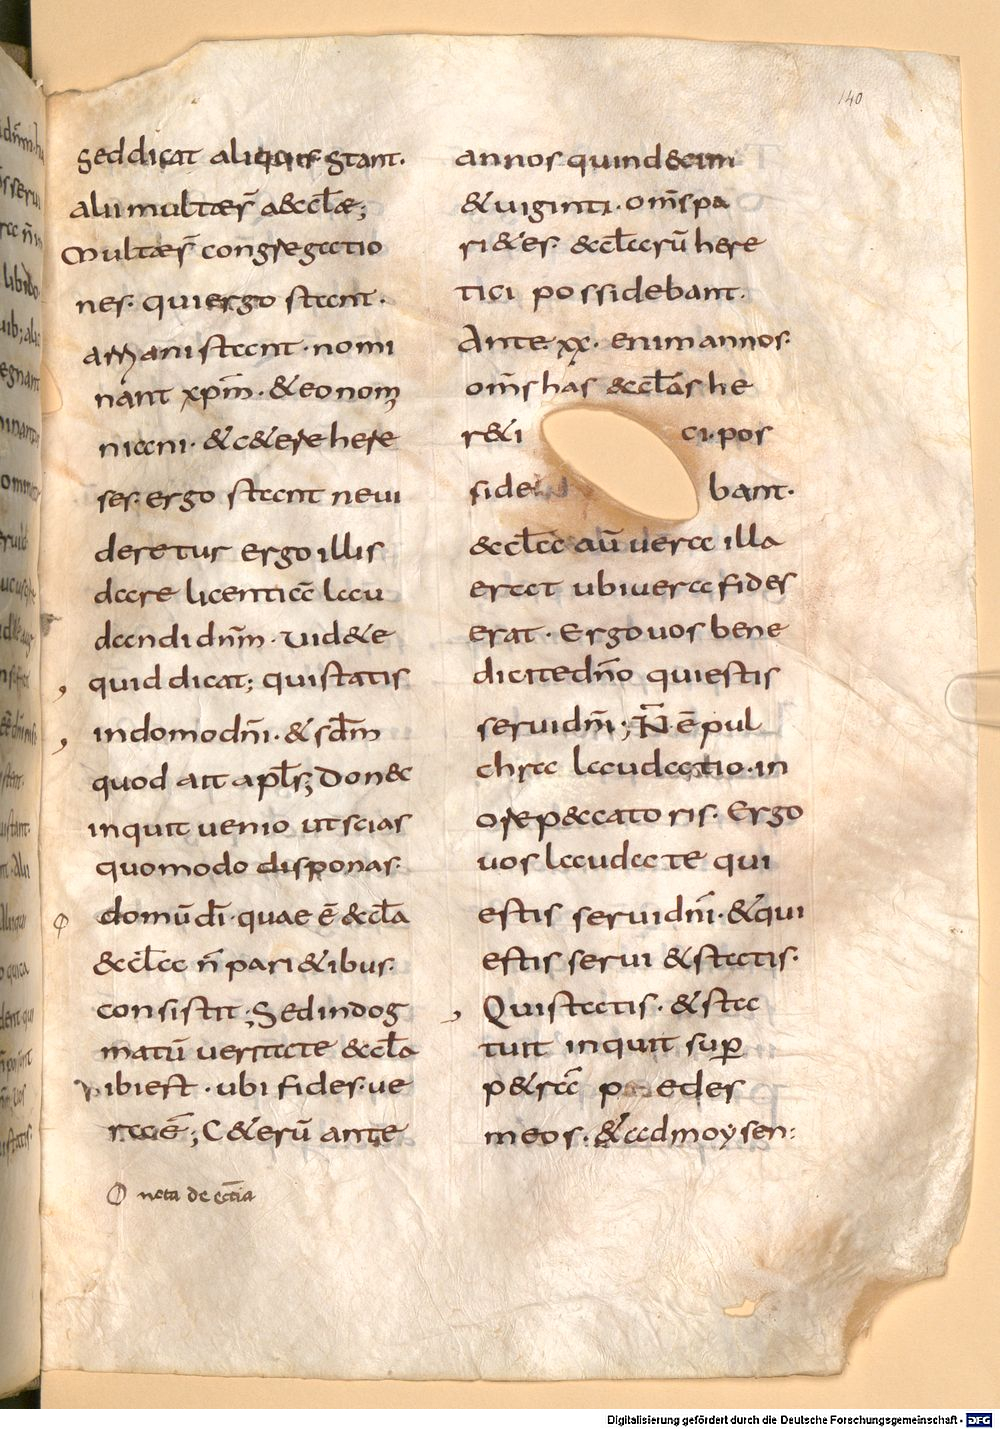 140
sed dicat aliquis stant.
alii multae s̄ aeccl̄ae;
Multae s̄ congregatio
nes. qui ergo stant.
arriani stant. nomi
nant xp̄m. & eonomi
niani. & cetere here
ses. ergo stant ne ui
deretur ergo illis
dare licentiā lau
dandi dn̄m. uidete
quid dicat; qui statis
in domo dn̄i. & sc̄dm
quod ait apl̄s; Donec
inquit uenio ut scias
quomodo disponas.
domū dī. quae ē &ccl̄a
&ccl̄ea n̄ parietibus.
consistit; Sed in dog
matū ueritate &ccl̄a
ibi est. ubi fides. ue
ra ē; Ceterū ante
Ꝋ nota de ecc̄lia
annos quindecim
& uiginti. om̄s pa
rietes. &ccl̄earū here
tici possidebant.
Ante. xx. enim annos.
om̄s has &ccl̄as he
reti ci. pos
side bant.
&ccl̄ea aū uera illa
erat ubi uera fides
erat. Ergo uos bene
dicite dn̄o qui estis
serui dn̄i; N̄ ē pul
chra laudatio. in
ore peccatoris. Ergo
uos laudate qui
estis serui dn̄i. & qui
estis serui & statis.
Qui statis. & sta
tuit inquit sup̄
petrā pedes
meos. & ad moysen:
Digitalisierung gefördert durch die Deutsche Forschungsgemeinschaft - DFG